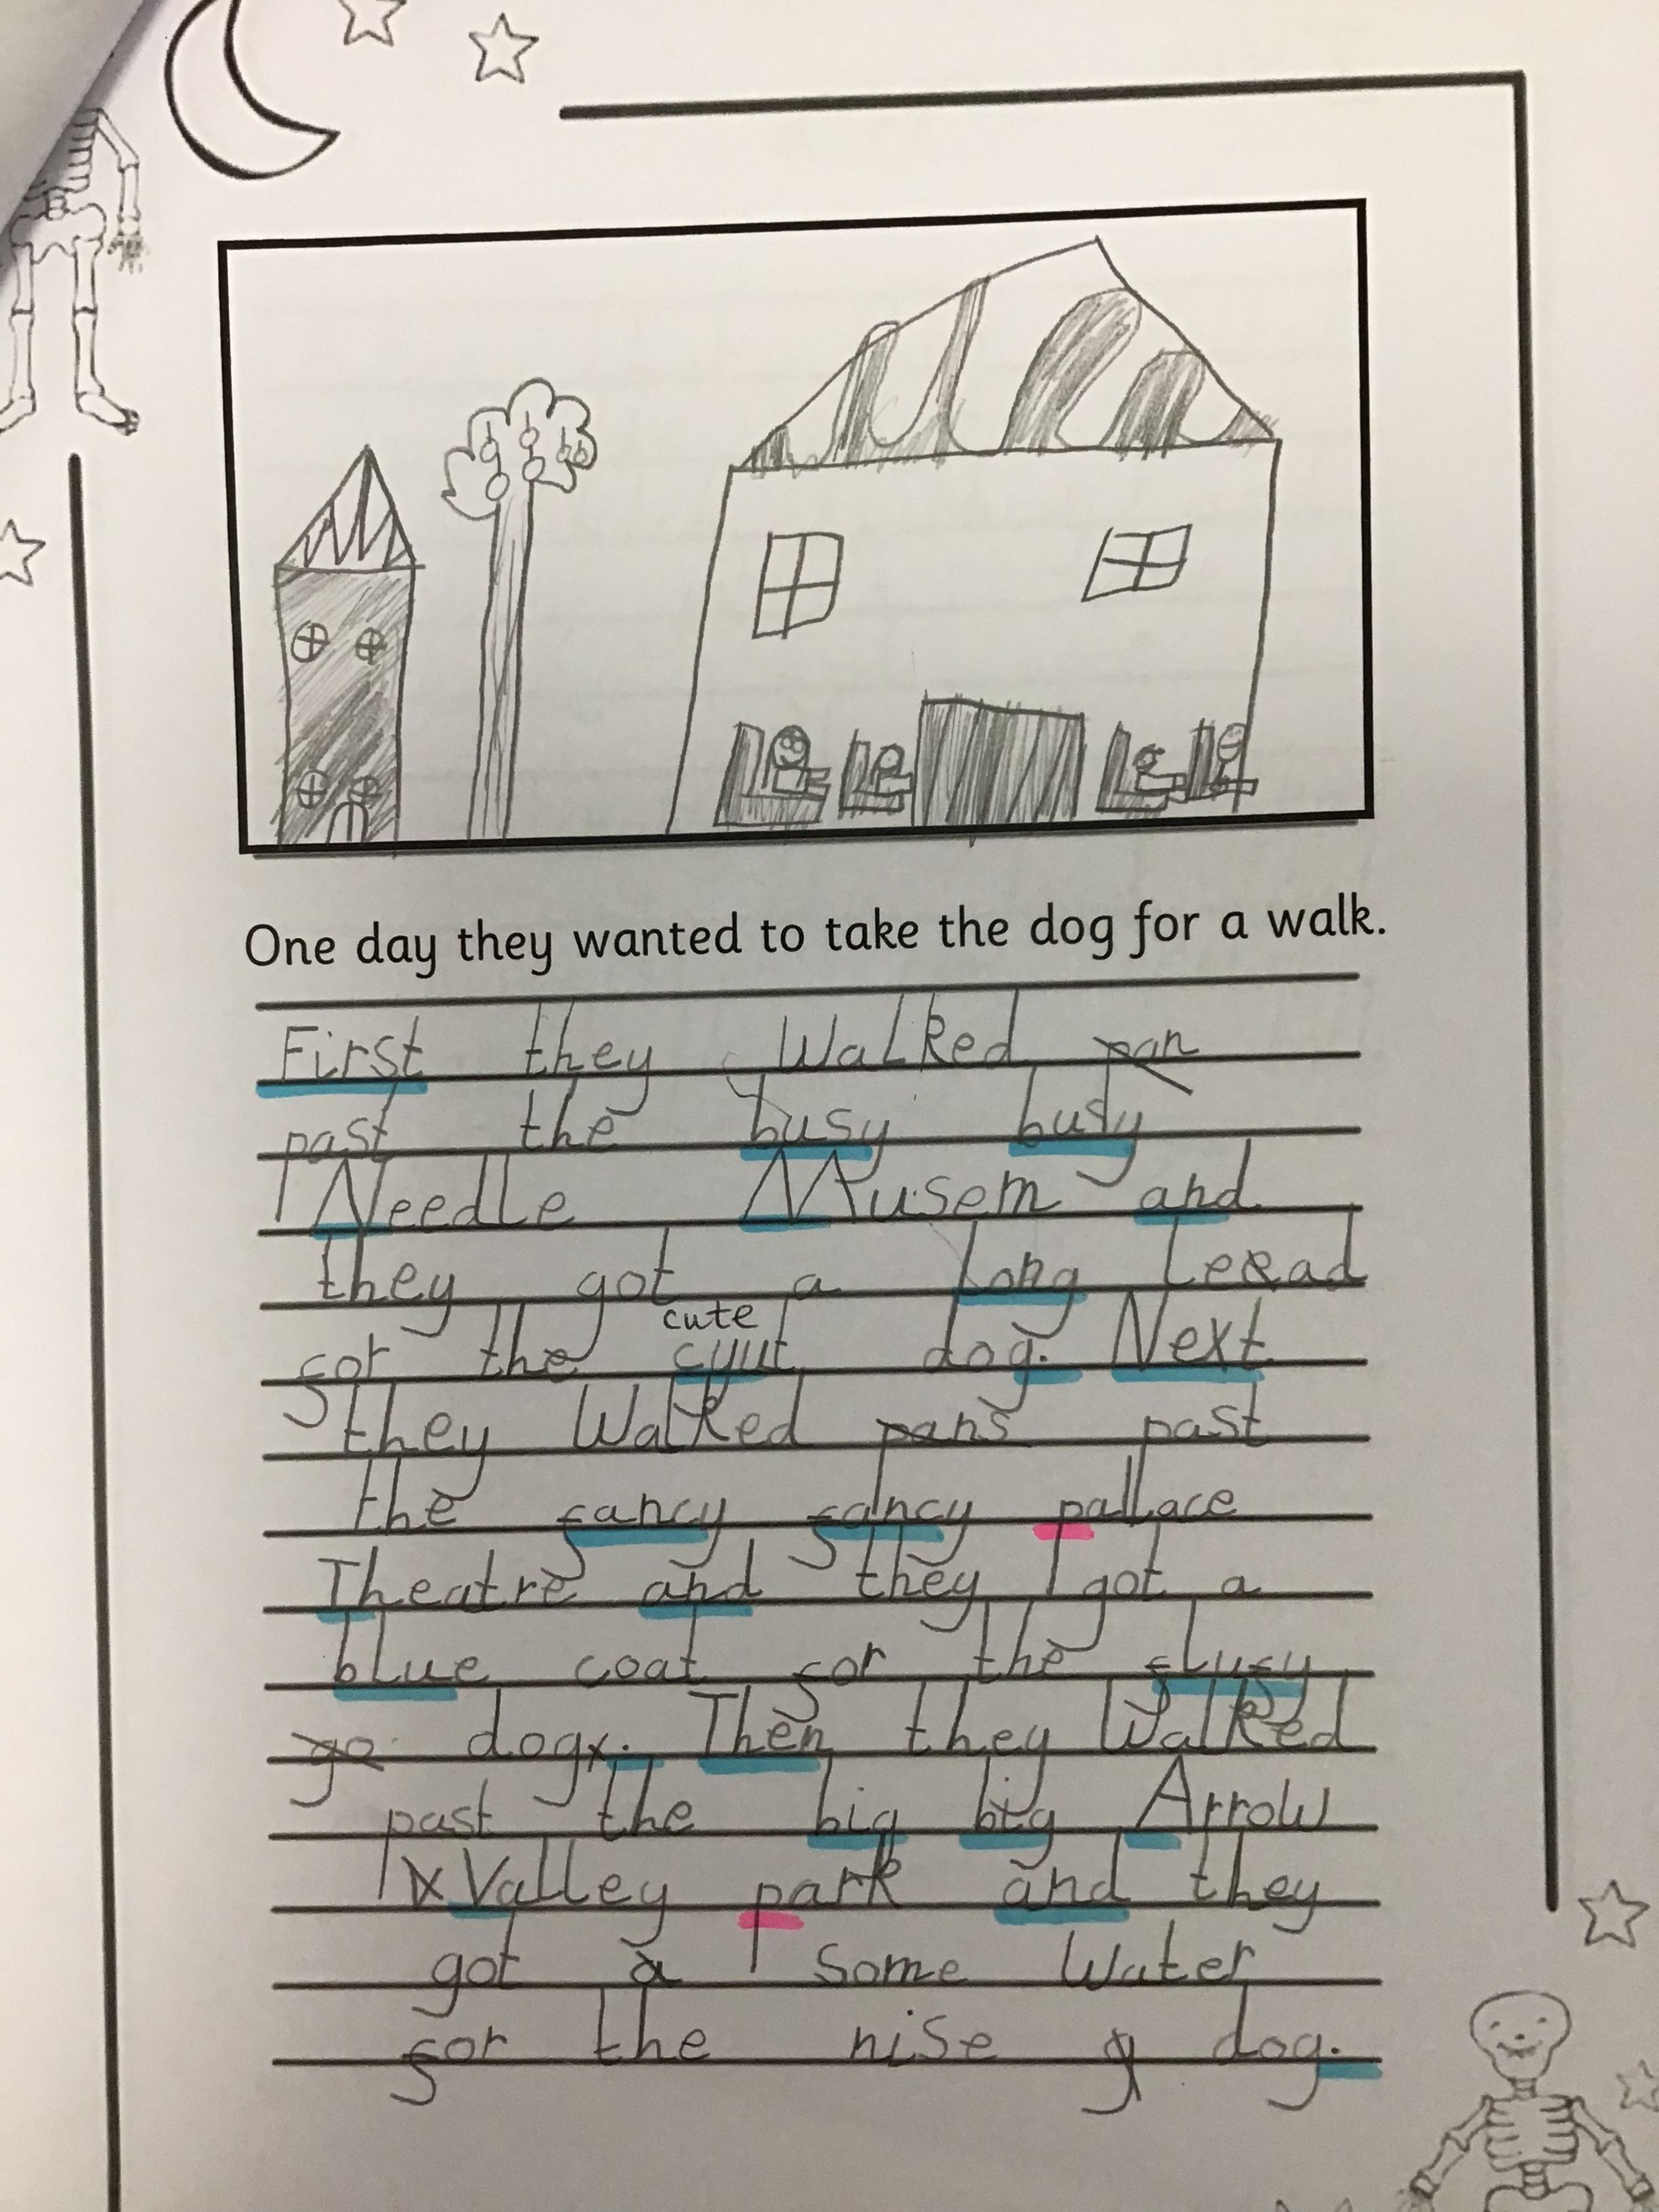 One day they wanted to take the dog for a walk.
First they Walked pan
past the busy busy
Needle Musem and
they got a long leead
for the cyut dog. Next
cute
they Walked pans past
the fancy fancy pallace
Theatre and they got a
blue coat for the flufy
go dog. Then they Walked
past the big big Arrow
Valley park and they
got a some Water
for the nise g dog.